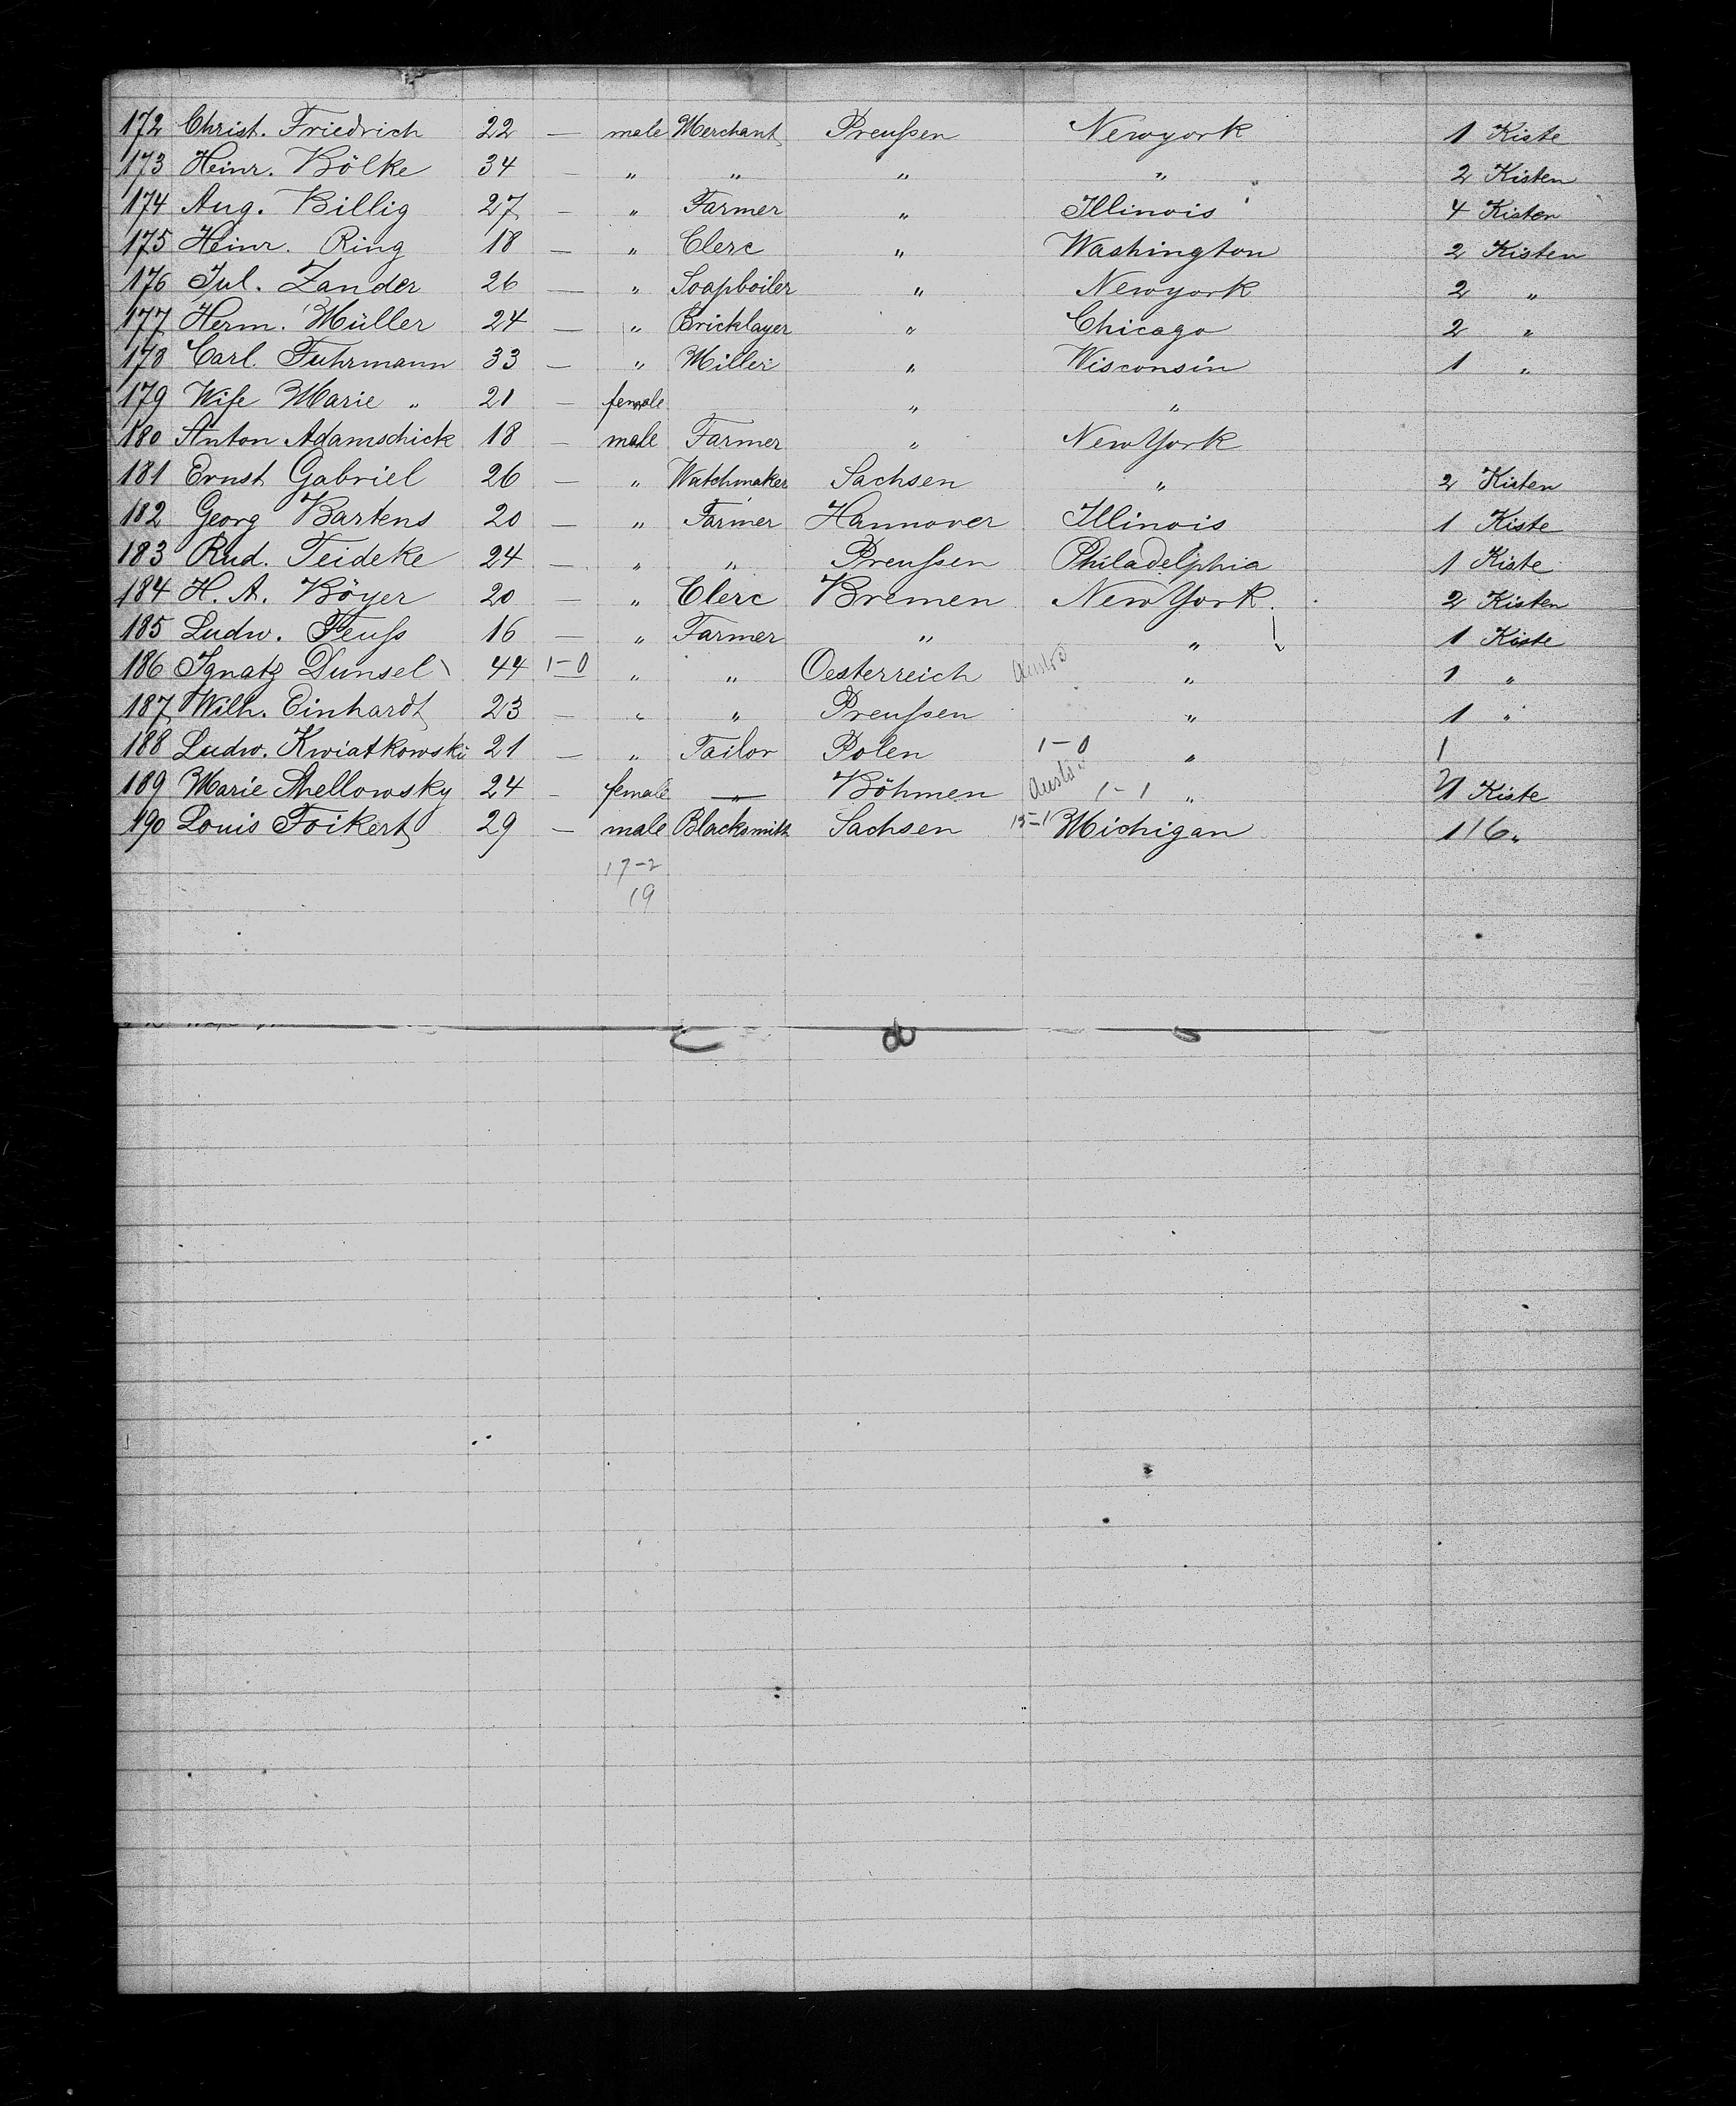 172 Christ. Friedrich 22 — male Merchant Preußen Newyork 1 Kiste
173 Heinr. Bölke 34 — " " " " 2 Kisten
174 Aug. Billig 27 — " Farmer " Illinois 4 Kisten
175 Heinr. Ring 18 — " Clerc " Washington 2 Kisten
176 Jul. Zander 26 — " Soapboiler " Newyork 2 "
177 Herm. Müller 24 — " Bricklayer " Chicago 2 "
178 Carl. Fuhrmann 33 — " Miller " Wisconsin 1 "
179 Wife Marie " 21 — female " "
180 Anton Adamschick 18 — male Farmer " New York
181 Ernst Gabriel 26 — " Watchmaker Sachsen " 2 Kisten
182 Georg Bartens 20 — " Farmer Hannover Illinois 1 Kiste
183 Rud. Teideke 24 — " " Preußen Philadelphia 1 Kiste
184 H. A. Böyer 20 — " Clerc Bremen New York. 2 Kisten
185 Ludw. Feuß 16 — " Farmer " " 1 Kiste
186 Ignatz Dunsel 44 1-0 " " Oesterreich " 1 "
187 Wilh. Einhardt 23 — " " Preußen " 1 "
188 Ludw. Kwiatkowski 21 — " Tailor Polen 1-0 " 1
189 Marie 24 — female — " — Böhmen 1-1 " 1 Kiste
190 Louis Foikert 29 — male Blacksmith Sachsen 15-1 Michigan 1 16 "
17-2
19